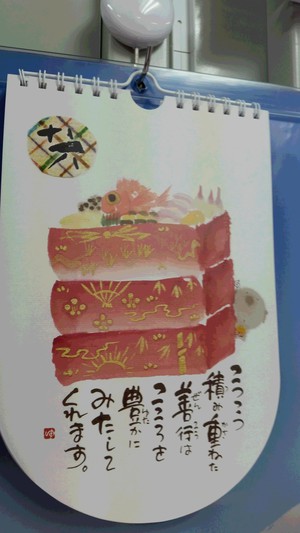 十八
こつこつ
積み重ねた
善行は
こころを
豊かに
みたして
くれます。